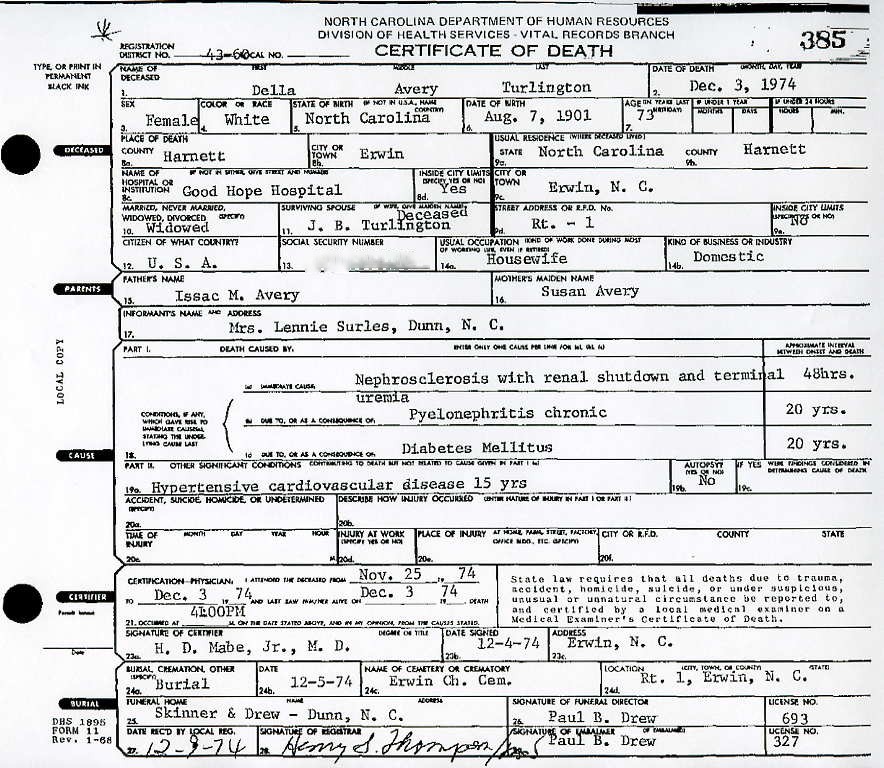 NORTH CAROLINA DEPARTMENT OF HUMAN RESOURCES
DIVISION OF HEALTH SERVICES - VITAL RECORDS BRANCH
CERTIFICATE OF DEATH
385
REGISTRATION
DISTRICT NO. 43-60 LOCAL NO.
TYPE, OR PRINT IN
PERMANENT
BLACK INK
NAME OF DECEASED FIRST MIDDLE LAST DATE OF DEATH (MONTH, DAY, YEAR)
1. Della Avery Turlington 2. Dec. 3, 1974
SEX COLOR OR RACE STATE OF BIRTH (IF NOT IN U.S.A., NAME COUNTRY) DATE OF BIRTH AGE (IN YEARS LAST BIRTHDAY) IF UNDER 1 YEAR IF UNDER 24 HOURS
MONTHS DAYS HOURS MIN.
3. Female 4. White 5. North Carolina 6. Aug. 7, 1901 7. 73
DECEASED
PLACE OF DEATH USUAL RESIDENCE (WHERE DECEASED LIVED)
8a. COUNTY Harnett 8b. CITY OR TOWN Erwin 9a. STATE North Carolina 9b. COUNTY Harnett
NAME OF HOSPITAL OR INSTITUTION (IF NOT IN EITHER, GIVE STREET AND NUMBER) INSIDE CITY LIMITS (SPECIFY YES OR NO) CITY OR TOWN
8c. Good Hope Hospital 8d. Yes 9c. Erwin, N. C.
MARRIED, NEVER MARRIED, WIDOWED, DIVORCED (SPECIFY) SURVIVING SPOUSE (IF WIFE, GIVE MAIDEN NAME) STREET ADDRESS OR R.F.D. No. INSIDE CITY LIMITS (SPECIFY YES OR NO)
Deceased
10. Widowed 11. J. B. Turlington 9d. Rt. - 1 9e. No
CITIZEN OF WHAT COUNTRY? SOCIAL SECURITY NUMBER USUAL OCCUPATION (KIND OF WORK DONE DURING MOST OF WORKING LIFE, EVEN IF RETIRED) KIND OF BUSINESS OR INDUSTRY
12. U. S. A. 13. 14a. Housewife 14b. Domestic
PARENTS
FATHER'S NAME MOTHER'S MAIDEN NAME
15. Issac M. Avery 16. Susan Avery
INFORMANT'S NAME AND ADDRESS
17. Mrs. Lennie Surles, Dunn, N. C.
LOCAL COPY
PART I. DEATH CAUSED BY: ENTER ONLY ONE CAUSE PER LINE FOR (a), (b), (c) APPROXIMATE INTERVAL BETWEEN ONSET AND DEATH
(a) IMMEDIATE CAUSE Nephrosclerosis with renal shutdown and terminal 48hrs.
uremia
CONDITIONS, IF ANY, WHICH GAVE RISE TO IMMEDIATE CAUSE(a), STATING THE UNDERLYING CAUSE LAST
(b) DUE TO, OR AS A CONSEQUENCE OF: Pyelonephritis chronic 20 yrs.
CAUSE
18. (c) DUE TO, OR AS A CONSEQUENCE OF: Diabetes Mellitus 20 yrs.
PART II. OTHER SIGNIFICANT CONDITIONS CONTRIBUTING TO DEATH BUT NOT RELATED TO CAUSE GIVEN IN PART I (a) AUTOPSY? (YES OR NO) IF YES WERE FINDINGS CONSIDERED IN DETERMINING CAUSE OF DEATH
19a. Hypertensive cardiovascular disease 15 yrs 19b. No 19c.
ACCIDENT, SUICIDE, HOMICIDE, OR UNDETERMINED (SPECIFY) DESCRIBE HOW INJURY OCCURRED (ENTER NATURE OF INJURY IN PART I OR PART II)
20a. 20b.
TIME OF INJURY MONTH DAY YEAR HOUR INJURY AT WORK (SPECIFY YES OR NO) PLACE OF INJURY AT HOME, FARM, STREET, FACTORY, OFFICE BLDG., ETC. (SPECIFY) CITY OR R.F.D. COUNTY STATE
20c. M. 20d. 20e. 20f.
CERTIFIER
CERTIFICATION-PHYSICIAN: I ATTENDED THE DECEASED FROM Nov. 25 19 74
TO Dec. 3 19 74 AND LAST SAW HIM/HER ALIVE ON Dec. 3 19 74, DEATH
21. OCCURRED AT 4:00PM M. ON THE DATE STATED ABOVE, AND IN MY OPINION, FROM THE CAUSES STATED.
State law requires that all deaths due to trauma,
accident, homicide, suicide, or under suspicious,
unusual or unnatural circumstance be reported to,
and certified by a local medical examiner on a
Medical Examiner's Certificate of Death.
SIGNATURE OF CERTIFIER DEGREE OR TITLE DATE SIGNED ADDRESS
23a. H. D. Mabe, Jr., M. D. 23b. 12-4-74 23c. Erwin, N. C.
Date
BURIAL, CREMATION, OTHER (SPECIFY) DATE NAME OF CEMETERY OR CREMATORY LOCATION (CITY, TOWN, OR COUNTY) (STATE)
24a. Burial 24b. 12-5-74 24c. Erwin Ch. Cem. 24d. Rt. 1, Erwin, N. C.
BURIAL
FUNERAL HOME NAME ADDRESS SIGNATURE OF FUNERAL DIRECTOR LICENSE NO.
25. Skinner & Drew - Dunn, N. C. 26. Paul B. Drew 693
DATE REC'D BY LOCAL REG. SIGNATURE OF REGISTRAR SIGNATURE OF EMBALMER (IF EMBALMED) LICENSE NO.
27. 12-9-74 28. Henry S. Thompson Paul B. Drew 327
DHS 1895
FORM 11
Rev. 1-68